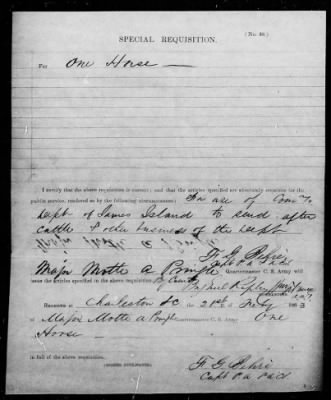 (No. 40.)
SPECIAL REQUISITION.
For One Horse
I certify that the above requisition is correct; and that the articles specified are absolutely requisite for the
public service, rendered so by the following circumstances: For use of Com'y
Dept of James Island to send after
cattle & other business of the Dept
F. G. Behre
Capt
Major Motte A Pringle Quartermaster C. S. Army will
issue the articles specified in the above requisition.
By
Ripley
RECEIVED at Charleston SC the 28th of Feby 1863
of Major Motte A Pringle Quartermaster C. S. Army One
Horse
in full of the above requisition.
(SIGNED DUPLICATES.)
F. G. Behre
Capt